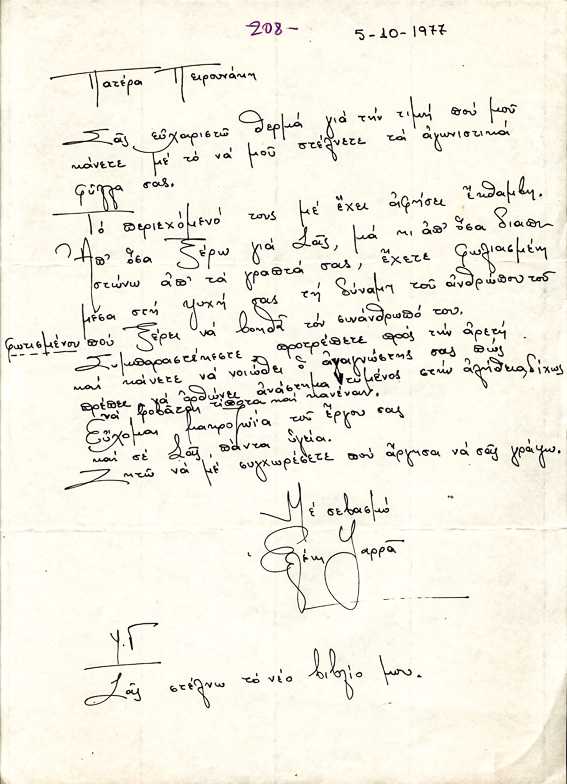 -208-
5-10-1977
Πατέρα Πειρουνάκη
Σᾶς εὐχαριστῶ θερμά γιά τήν τιμή πού μοῦ
κάνετε μέ τό νά μοῦ στέλνετε τά ἀγωνιστικά
φύλλα σας.
Τό περιεχόμενό τους μέ ἔχει ἀφήσει ἔκθαμβη.
Ἀπ' ὅσα ξέρω γιά Σᾶς, μά κι ἀπ' ὅσα διαπι-
στώνω ἀπ' τά γραπτά σας, ἔχετε φωλιασμένη
μέσα στή ψυχή σας τή δύναμη τοῦ ἀνθρώπου τοῦ
φωτισμένου πού ξέρει νά βοηθᾶ τόν συνάνθρωπό του.
Συμπαραστέκεστε, προτρέπετε πρός τήν ἀρετή
καί κάνετε νά νοιώθει ὁ ἀναγνώστης σας πώς
πρέπει νά ὀρθώνει ἀνάστημα στήν ἀλήθεια, δίχως
νά φοβᾶται τίποτα καί κανέναν.
Εὔχομαι μακροζωΐα τοῦ ἔργου σας
καί σέ Σᾶς, πάντα ὑγεία.
Ζητῶ νά μέ συγχωρέσετε πού ἄργησα νά σᾶς γράψω.
Μέ σεβασμό
Ἑλένη
Υ.Γ
Σᾶς στέλνω τό νέο βιβλίο μου.